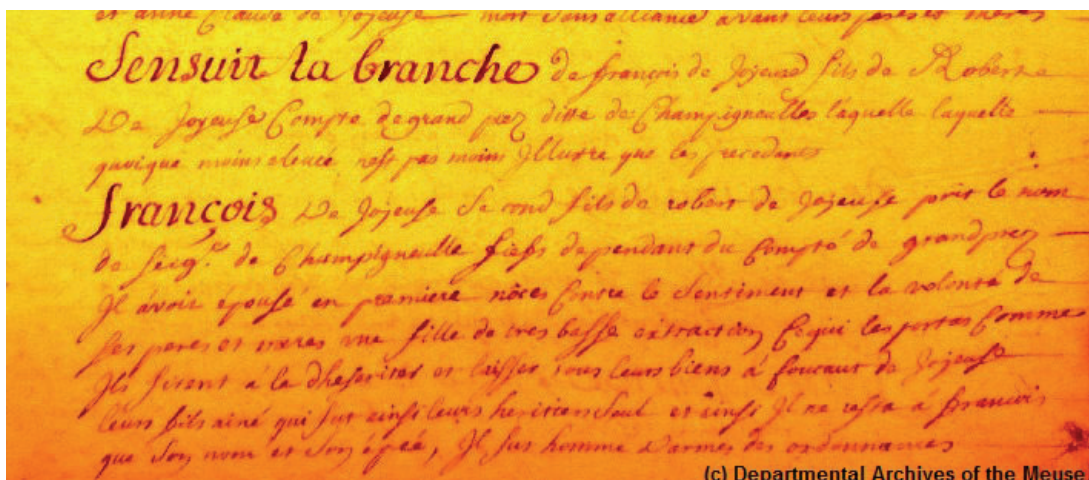 et anne Claude de Joyeuse mort sans alliance avant leurs peres et meres
Sensuit la branche de françois de Joyeuse fils de Roberte
De Joyeuse Compte de grand prez ditte de Champigneulles laquelle laquelle
quoique moins elevée nest pas moins Jllustre que les precedants
françois De Joyeuse Second fils de robert de Joyeuse prit le nom
de seigr. de Champigneulle fiefs dependant du Compté de grandprez
Jl avoit épousé en premiere nôces Contre le Sentiment et la volonté de
ses peres et meres une fille de tres basse extraction Cequi les portas Comme
Jls firent à la dheseriter et laisser tous leurs biens à foucaut de Joyeuse
leurs fils ainé qui fut ainsi leurs heritier Seul et ainsi Jl ne resta à francois
que Son nom et Son épéé, Jl fut homme d'armes des ordonnances
(c) Departmental Archives of the Meuse